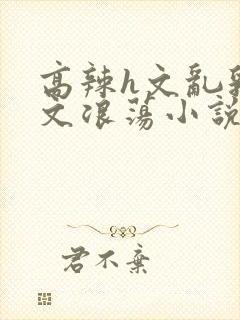 高辣h文亂
文浪蕩小說
君不棄